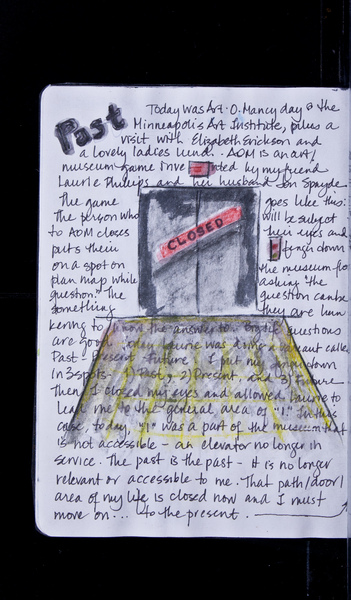 Past
Today was Art-O-Mancy day @ the
Minneapolis Art Institute, plus a
visit with Elizabeth Erickson and
a lovely ladies lunch. AOM is an art/
museum game inve ted by my friend
Laurie Phillips and her husband Jon Spayde.
The game goes like this:
The person who will be subject
to AOM closes their eyes and
puts their finger down
on a spot on the museum floor
plan map while asking the
question. The question can be
something they are hun
kering to know the answer to. Simple questions
are good. Today Laurie was doing a variant called
Past - Present - Future. I put my finger down
in 3 spots - 1) Past, 2) Present, and 3) Future.
Then I closed my eyes and allowed Laurie to
lead me to the general area of "1." In this
case, today, "1" was a part of the museum that
is not accessible - an elevator no longer in
service. The past is the past - it is no longer
relevant or accessible to me. That path/door/
area of my life is closed now and I must
move on... to the present.
CLOSED